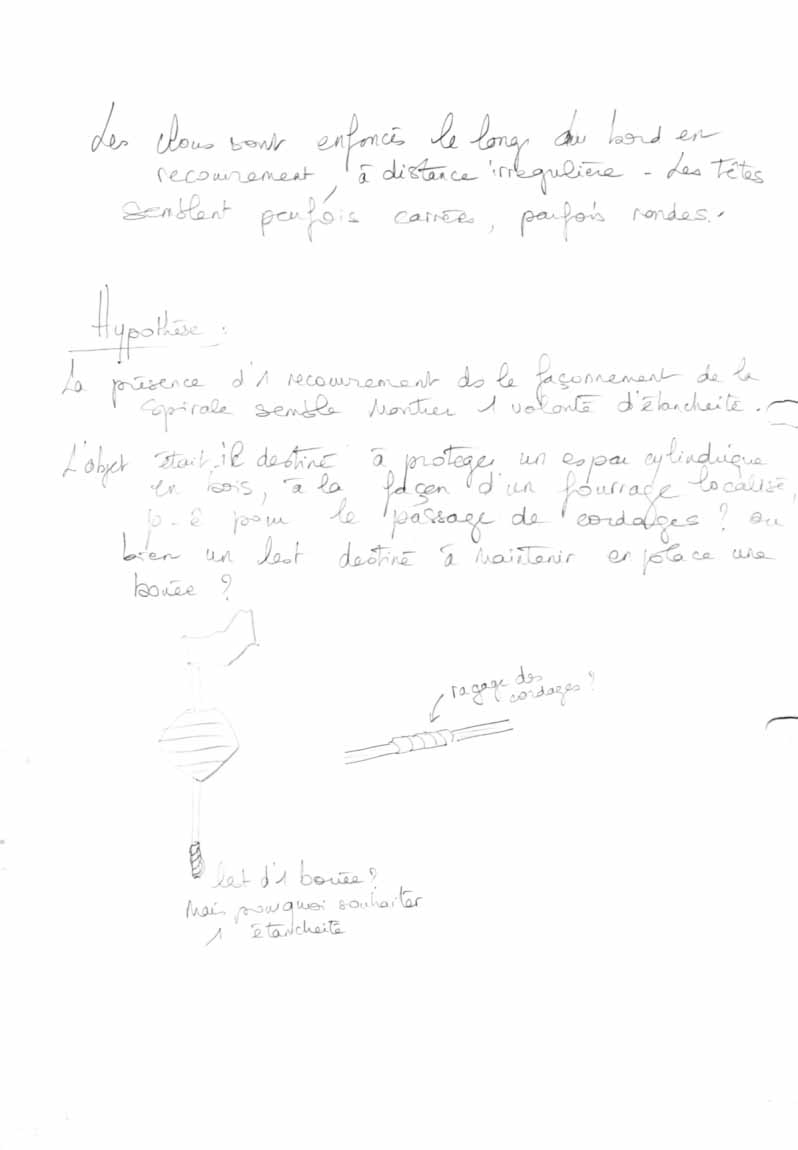 Les clous sont enfoncés le long du bord en
recouvrement, à distance irrégulière - Les têtes
semblent parfois carrées, parfois rondes.
Hypothèse :
La présence d'1 recouvrement ds le façonnement de la
spirale semble montrer 1 volonté d'étancheité.
L'objet était-il destiné à protéger un espar cylindrique
en bois, à la façon d'un fourrage localisé,
p-ê pour le passage de cordages ? ou
bien un lest destiné à maintenir en place une
bouée ?
ragage des
cordages ?
lest d'1 bouée ?
Mais pourquoi souhaiter
1 étancheité